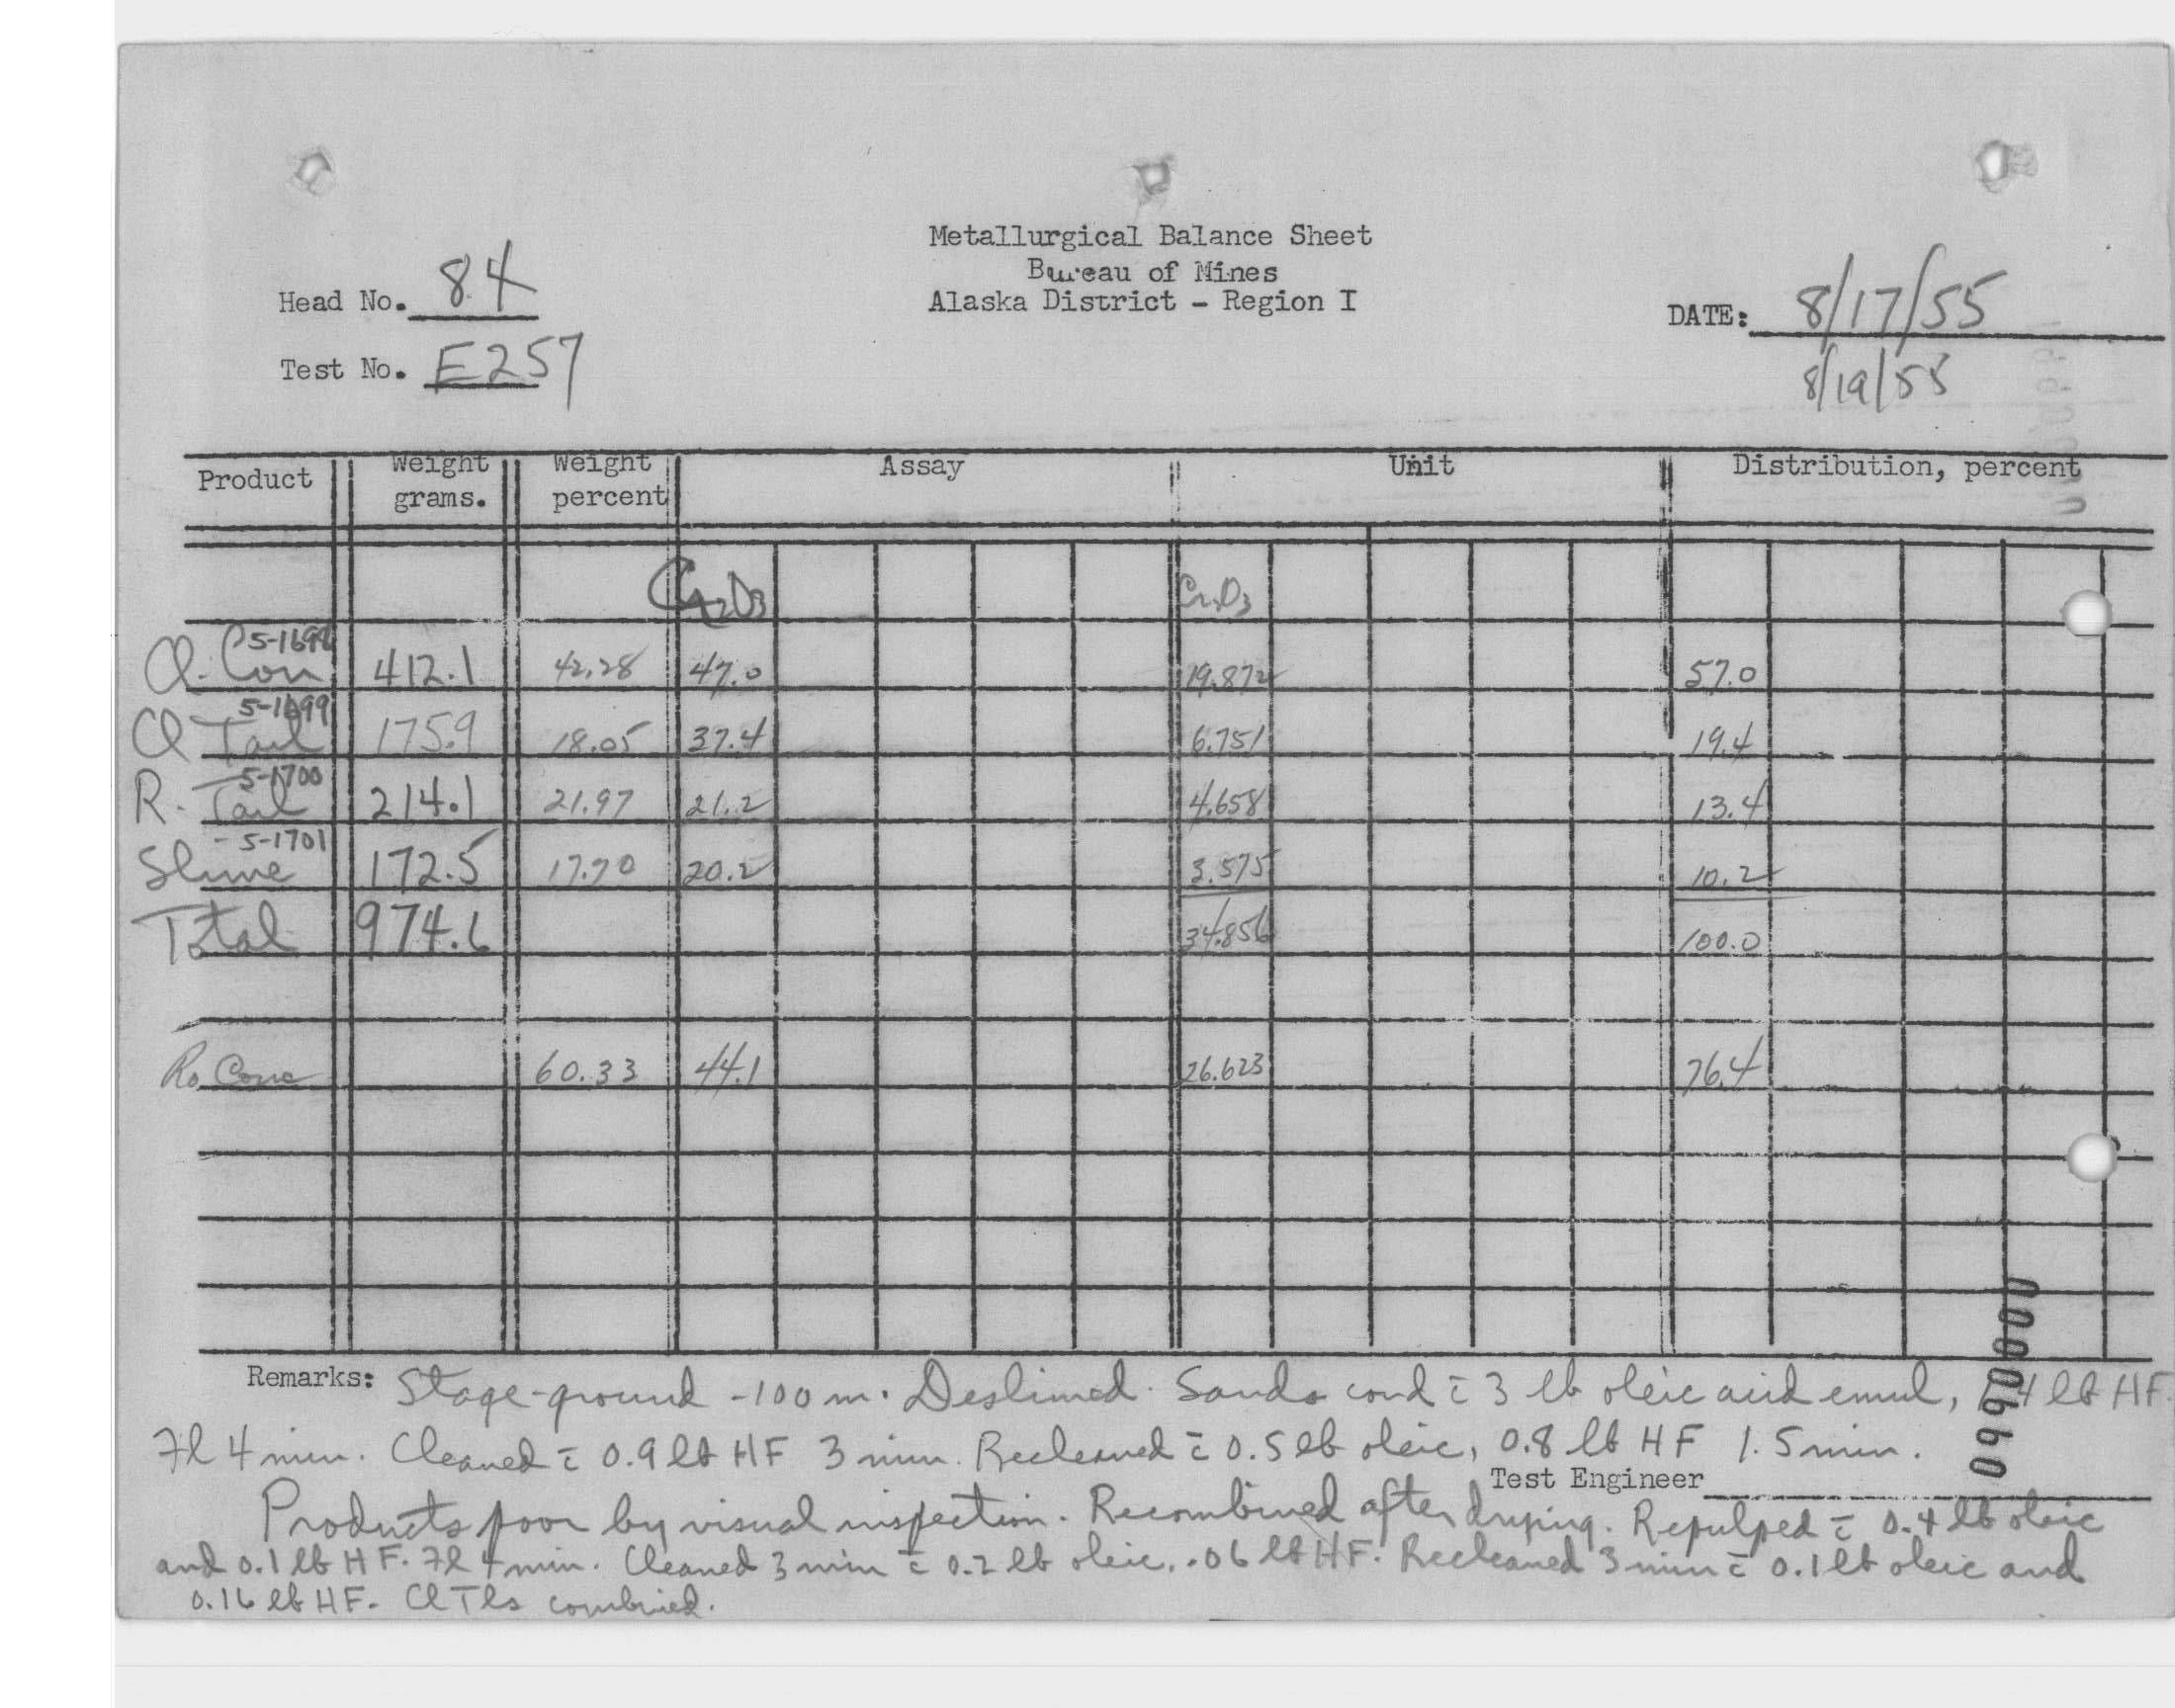 Metallurgical Balance Sheet
Bureau of Mines
Alaska District - Region I
Head No. 84
Test No. E257
DATE: 8/17/55
8/19/55
Product Weight grams. Weight percent Assay Unit Distribution, percent
Cr2O3 Cr2O3
5-1698
Cl. Con 412.1 42.28 47.0 19.872 57.0
5-1699
Cl Tail 175.9 18.05 37.4 6.751 19.4
5-1700
R. Tail 214.1 21.97 21.2 4.658 13.4
5-1701
Slime 172.5 17.70 20.2 3.575 10.2
Total 974.6 34.856 100.0
Ro Conc 60.33 44.1 26.623 76.4
Remarks: Stage-ground -100 m. Deslimed. Sands cond c̄ 3 lb oleic acid emul, 4 lb HF.
Fl 4 min. Cleaned c̄ 0.9 lb HF 3 min. Recleaned c̄ 0.5 lb oleic, 0.8 lb HF 1.5 min.
Test Engineer
Products poor by visual inspection. Recombined after drying. Repulped c̄ 0.4 lb oleic
and 0.1 lb HF. Fl 4 min. Cleaned 3 min c̄ 0.2 lb oleic, .06 lb HF. Recleaned 3 min c̄ 0.1 lb oleic and
0.16 lb HF. Cl Tls combined.